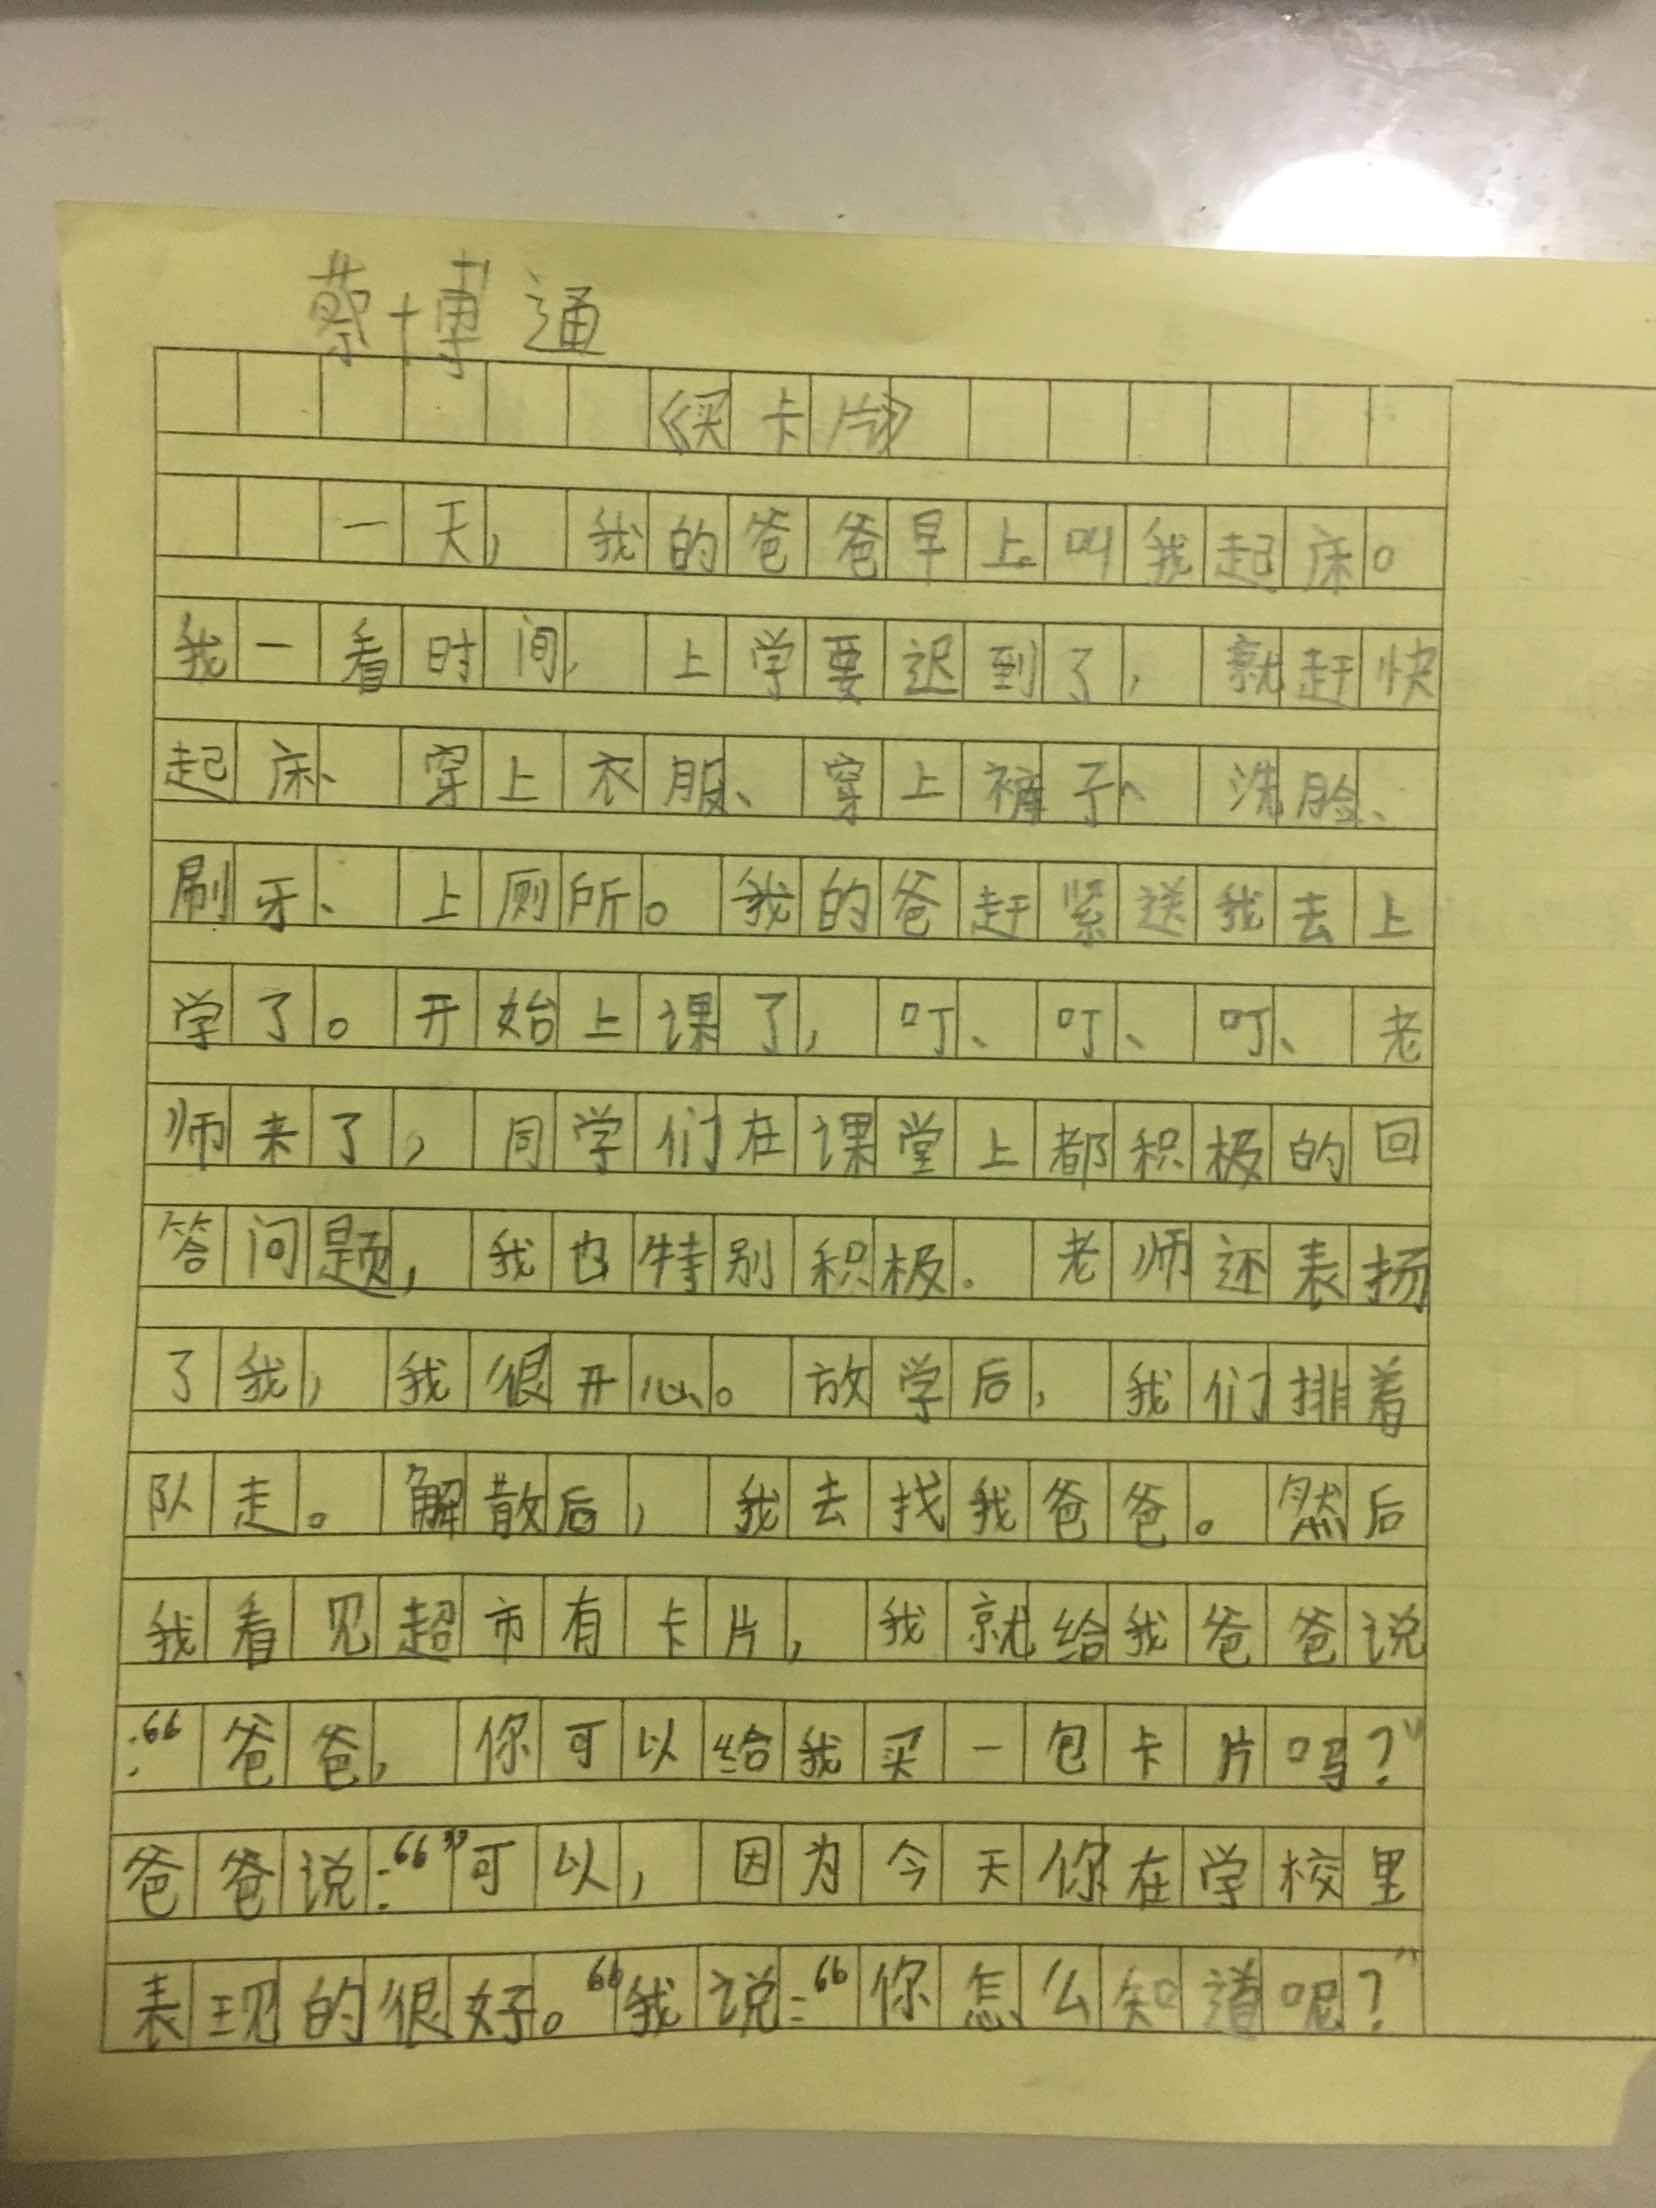 蔡博通
《买卡片》
一天，我的爸爸早上叫我起床。
我一看时间，上学要迟到了，就赶快
起床、穿上衣服、穿上裤子、洗脸、
刷牙、上厕所。我的爸赶紧送我去上
学了。开始上课了，叮、叮、叮、老
师来了，同学们在课堂上都积极的回
答问题，我也特别积极。老师还表扬
了我，我很开心。放学后，我们排着
队走。解散后，我去找我爸爸。然后
我看见超市有卡片，我就给我爸爸说
：“爸爸，你可以给我买一包卡片吗？”
爸爸说：“”可以，因为今天你在学校里
表现的很好。“我说：“你怎么知道呢？”